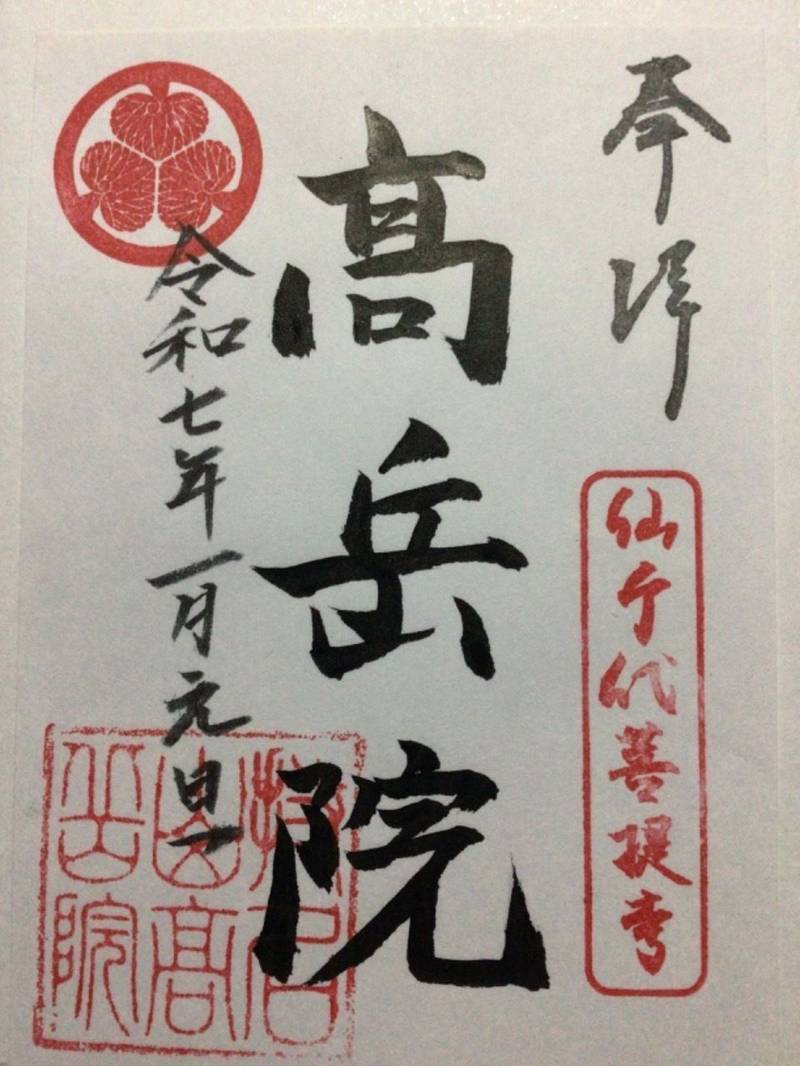 奉拝
仙千代菩提寺
高岳院
令和七年一月元旦
山高
岳院